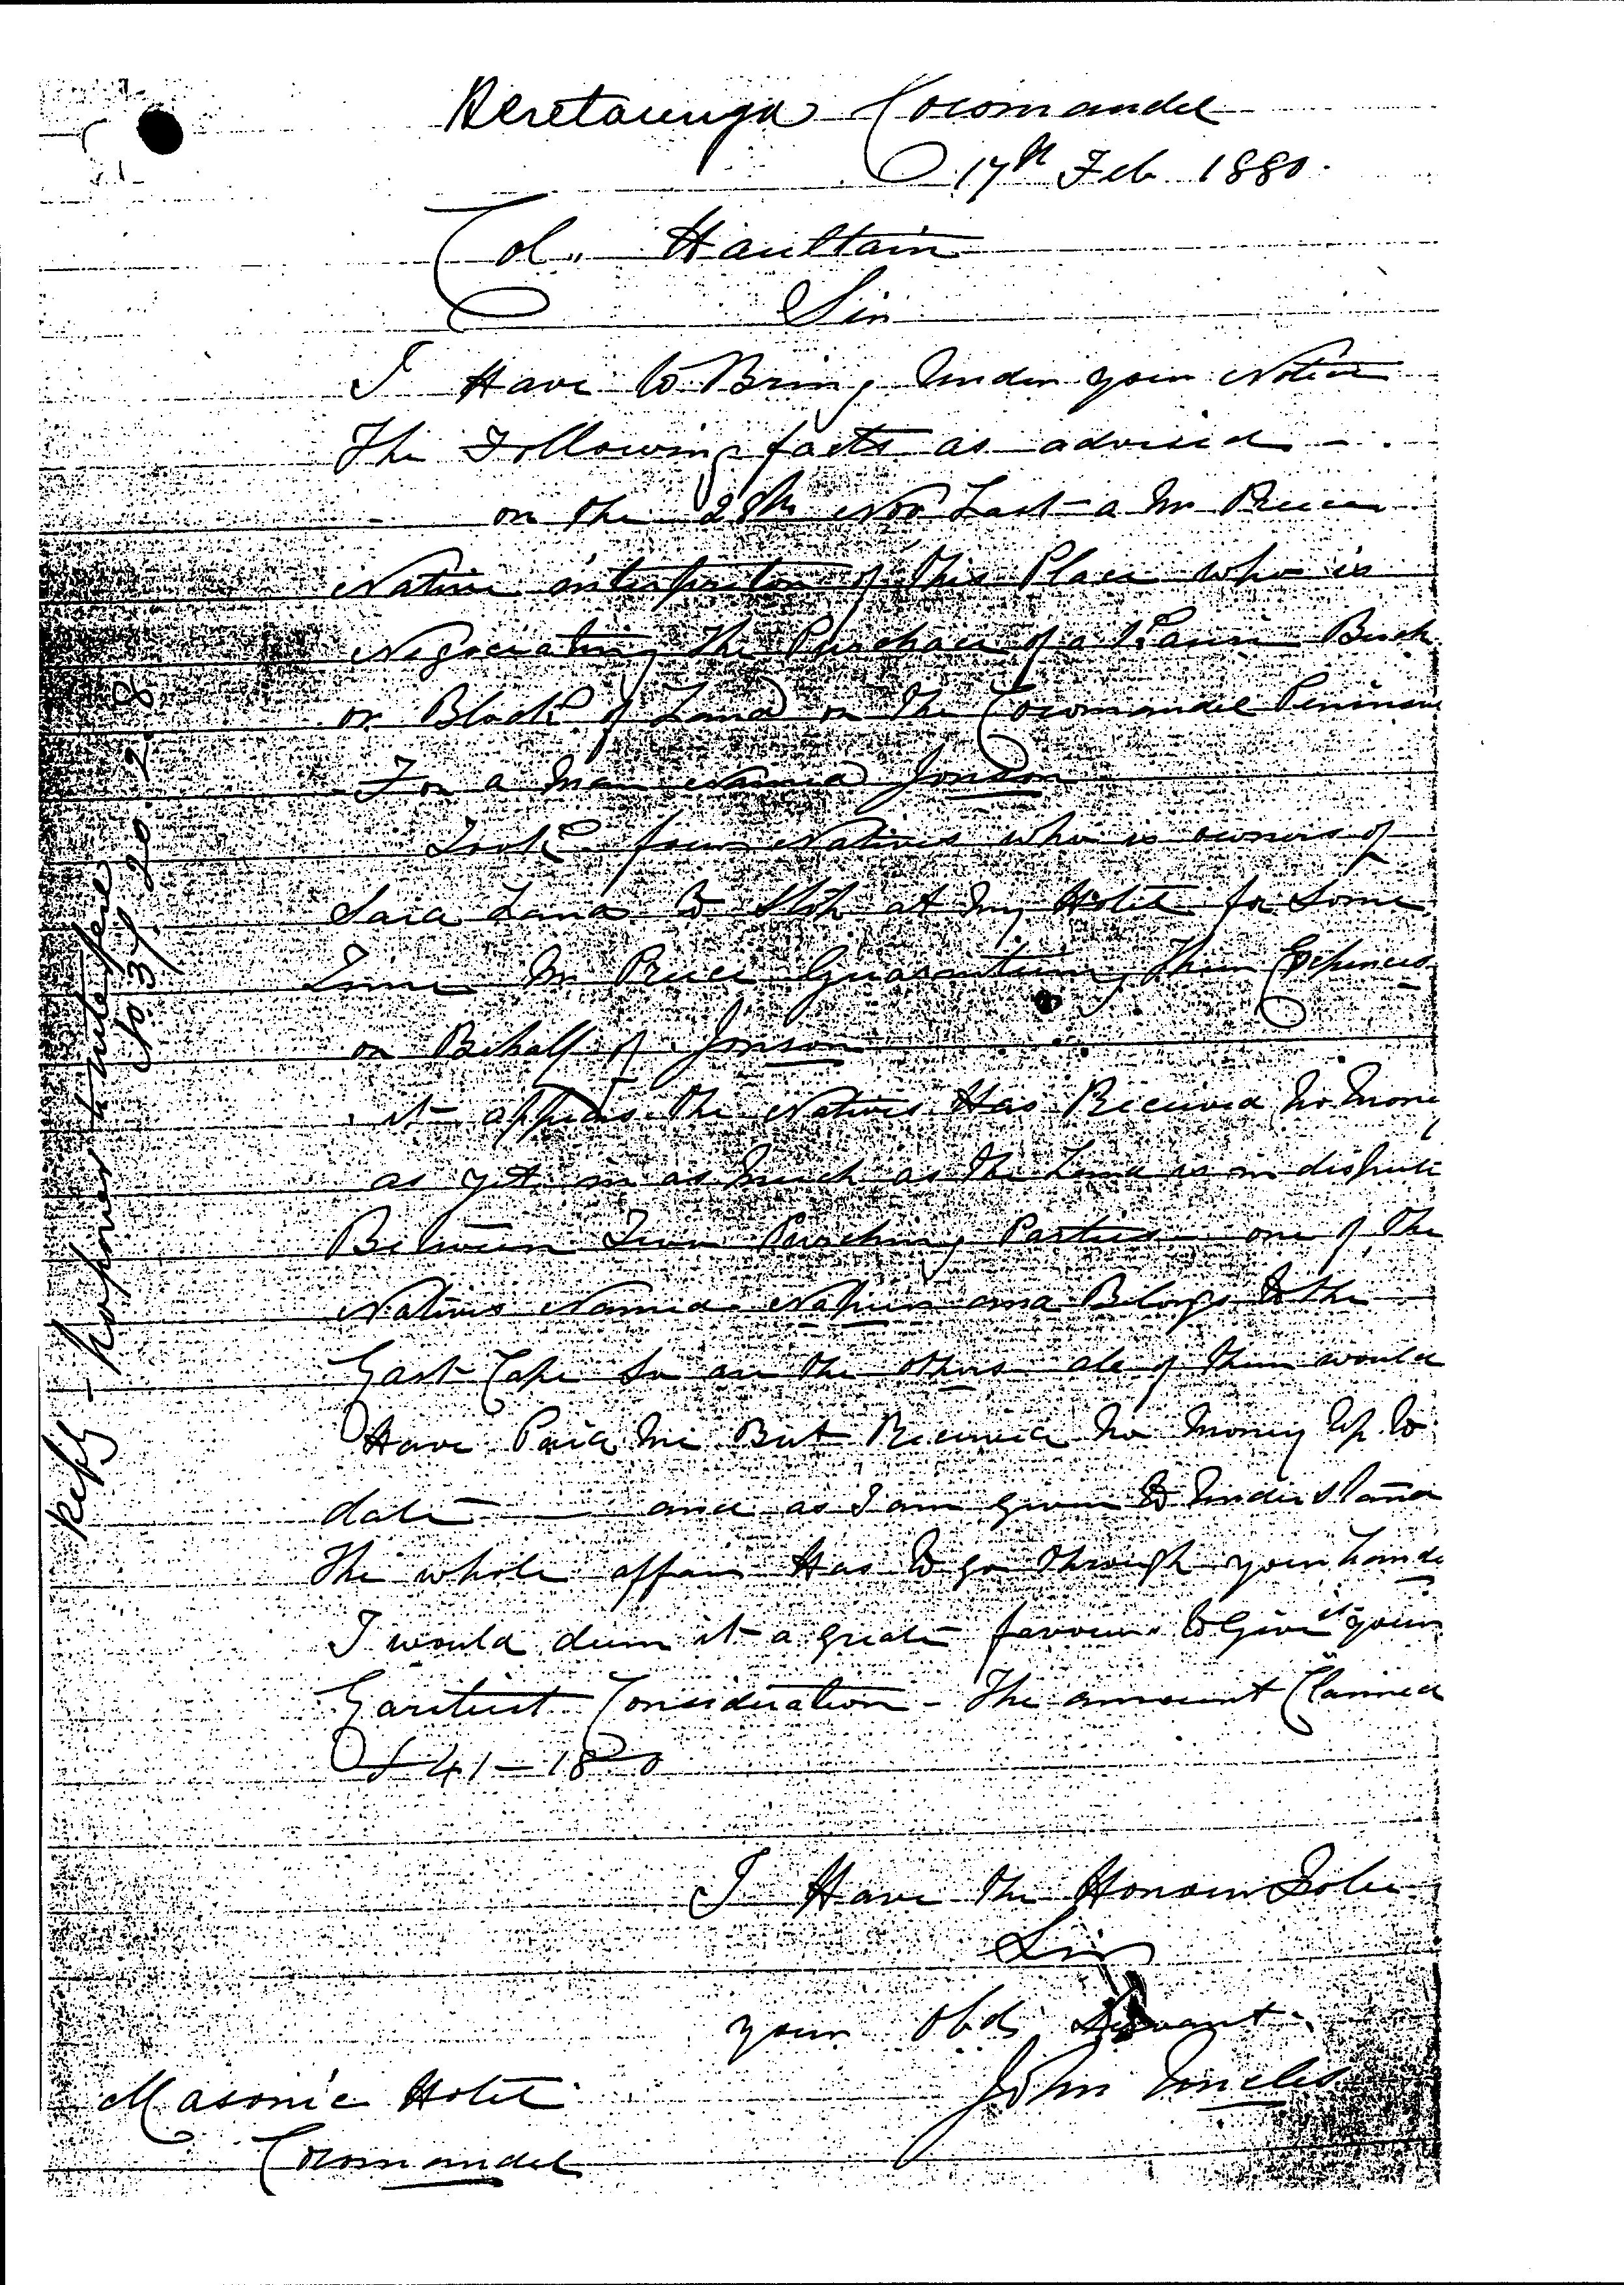 Heretaunga Coromandel
17th Feb 1880.
Col. Haultain
Sir
I Have to Bring Under your Notice
The Following facts as advised -
on the 28th Nov Last a Mr Preece
Native interpreter of this Place who is
Negociating the Purchace of a Kauri Bush
or Block of Land on The Coromandel Peninsu
For a Man Named Jonson
Took four Natives who is owners of
Said Land to Stop at my Hotel for Some
Time Mr Preece Guaranteeing their Expences
on Behalf of Jonson
it appears the Natives Has Received no Mone
y
as yet in as much as the Land is in dispute
Between Two Purching Parties one of the
Natives Named and Belongs to the
East Cape So are the others all of them would
Have Paid me But Received no Money Up to
date - and as I am given to Understand
The whole affair Has to go through your hands
I would deem it a great favour to Give it your
Earliest Consideration - The amount Claimed
£41-18-0
I Have the Honour To be
Sir
your Obd Servant
John
Masonic Hotel
Coromandel
Reply - no power to interfere
20.2.80